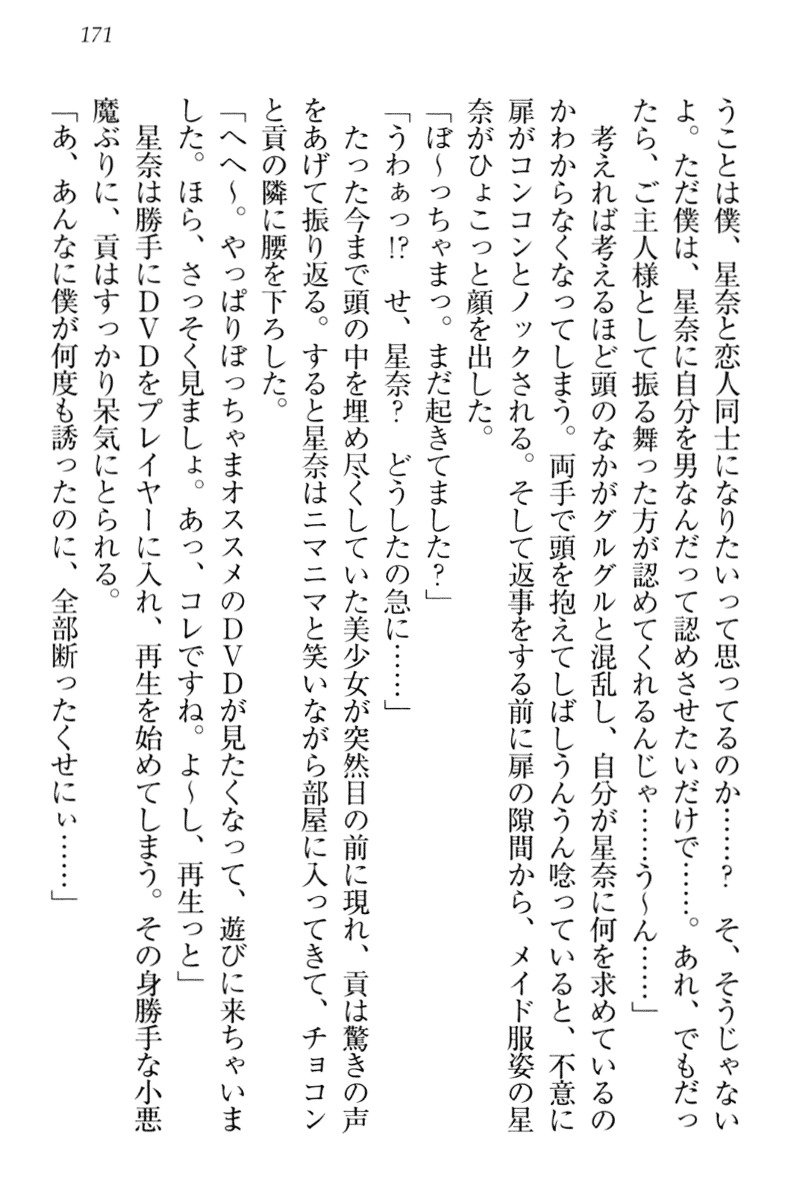 171
うことは僕、星奈と恋人同士になりたいって思ってるのか……？　そ、そうじゃない
よ。ただ僕は、星奈に自分を男なんだって認めさせたいだけで……。あれ、でもだっ
たら、ご主人様として振る舞った方が認めてくれるんじゃ……う～ん……」
　考えれば考えるほど頭のなかがグルグルと混乱し、自分が星奈に何を求めているの
かわからなくなってしまう。両手で頭を抱えてしばしうんうん唸っていると、不意に
扉がコンコンとノックされる。そして返事をする前に扉の隙間から、メイド服姿の星
奈がひょこっと顔を出した。
「ぼ～っちゃまっ。まだ起きてました？」
「うわぁっ!?　せ、星奈？　どうしたの急に……」
　たった今まで頭の中を埋め尽くしていた美少女が突然目の前に現れ、貢は驚きの声
をあげて振り返る。すると星奈はニマニマと笑いながら部屋に入ってきて、チョコン
と貢の隣に腰を下ろした。
「へへ～。やっぱりぼっちゃまオススメのDVDが見たくなって、遊びに来ちゃいま
した。ほら、さっそく見ましょ。あっ、コレですね。よ～し、再生っと」
　星奈は勝手にDVDをプレイヤーに入れ、再生を始めてしまう。その身勝手な小悪
魔ぶりに、貢はすっかり呆気にとられる。
「あ、あんなに僕が何度も誘ったのに、全部断ったくせにぃ……」